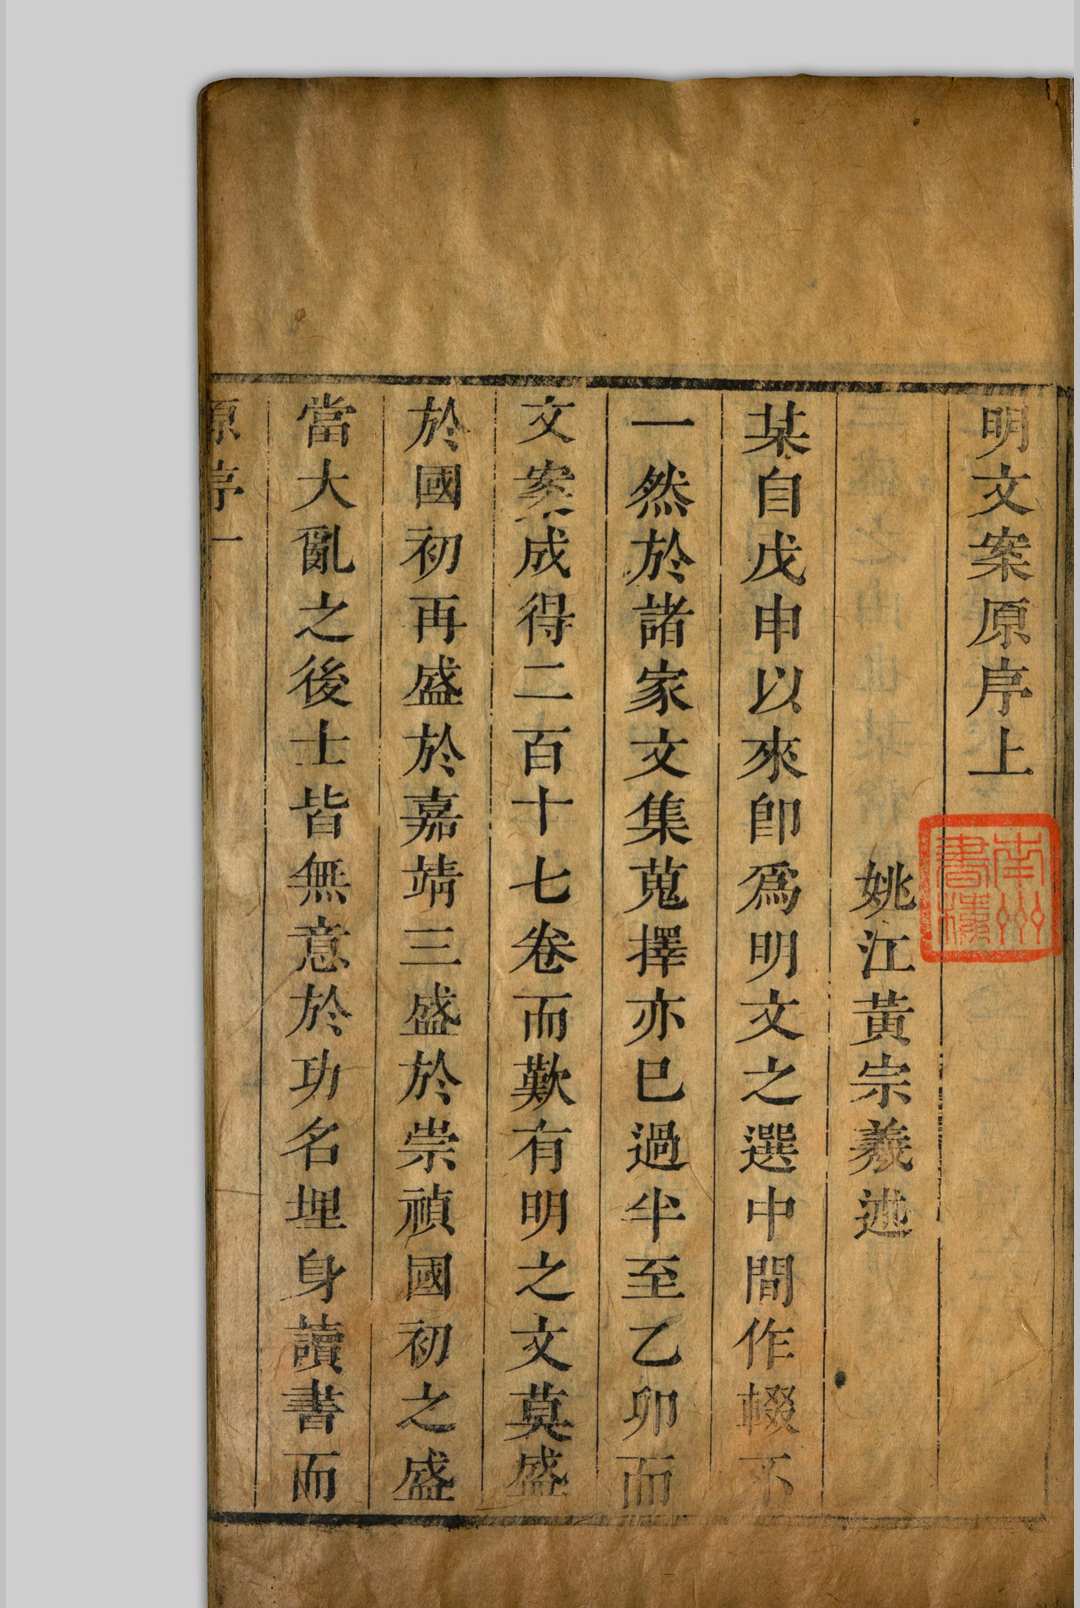 明文案原序上
姚江黃宗羲述
某自戊申以來即爲明文之選中間作輟不
一然於諸家文集蒐擇亦已過半至乙卯而
文案成得二百十七卷而歎有明之文莫盛
於國初再盛於嘉靖三盛於崇禎國初之盛
當大亂之後士皆無意於功名埋身讀書而
原序一
南州書樓